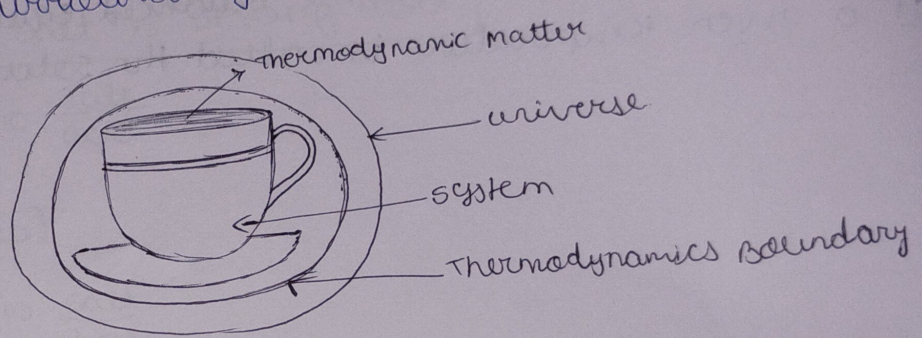 Thermodynamic matter
universe
system
Thermodynamics Boundary